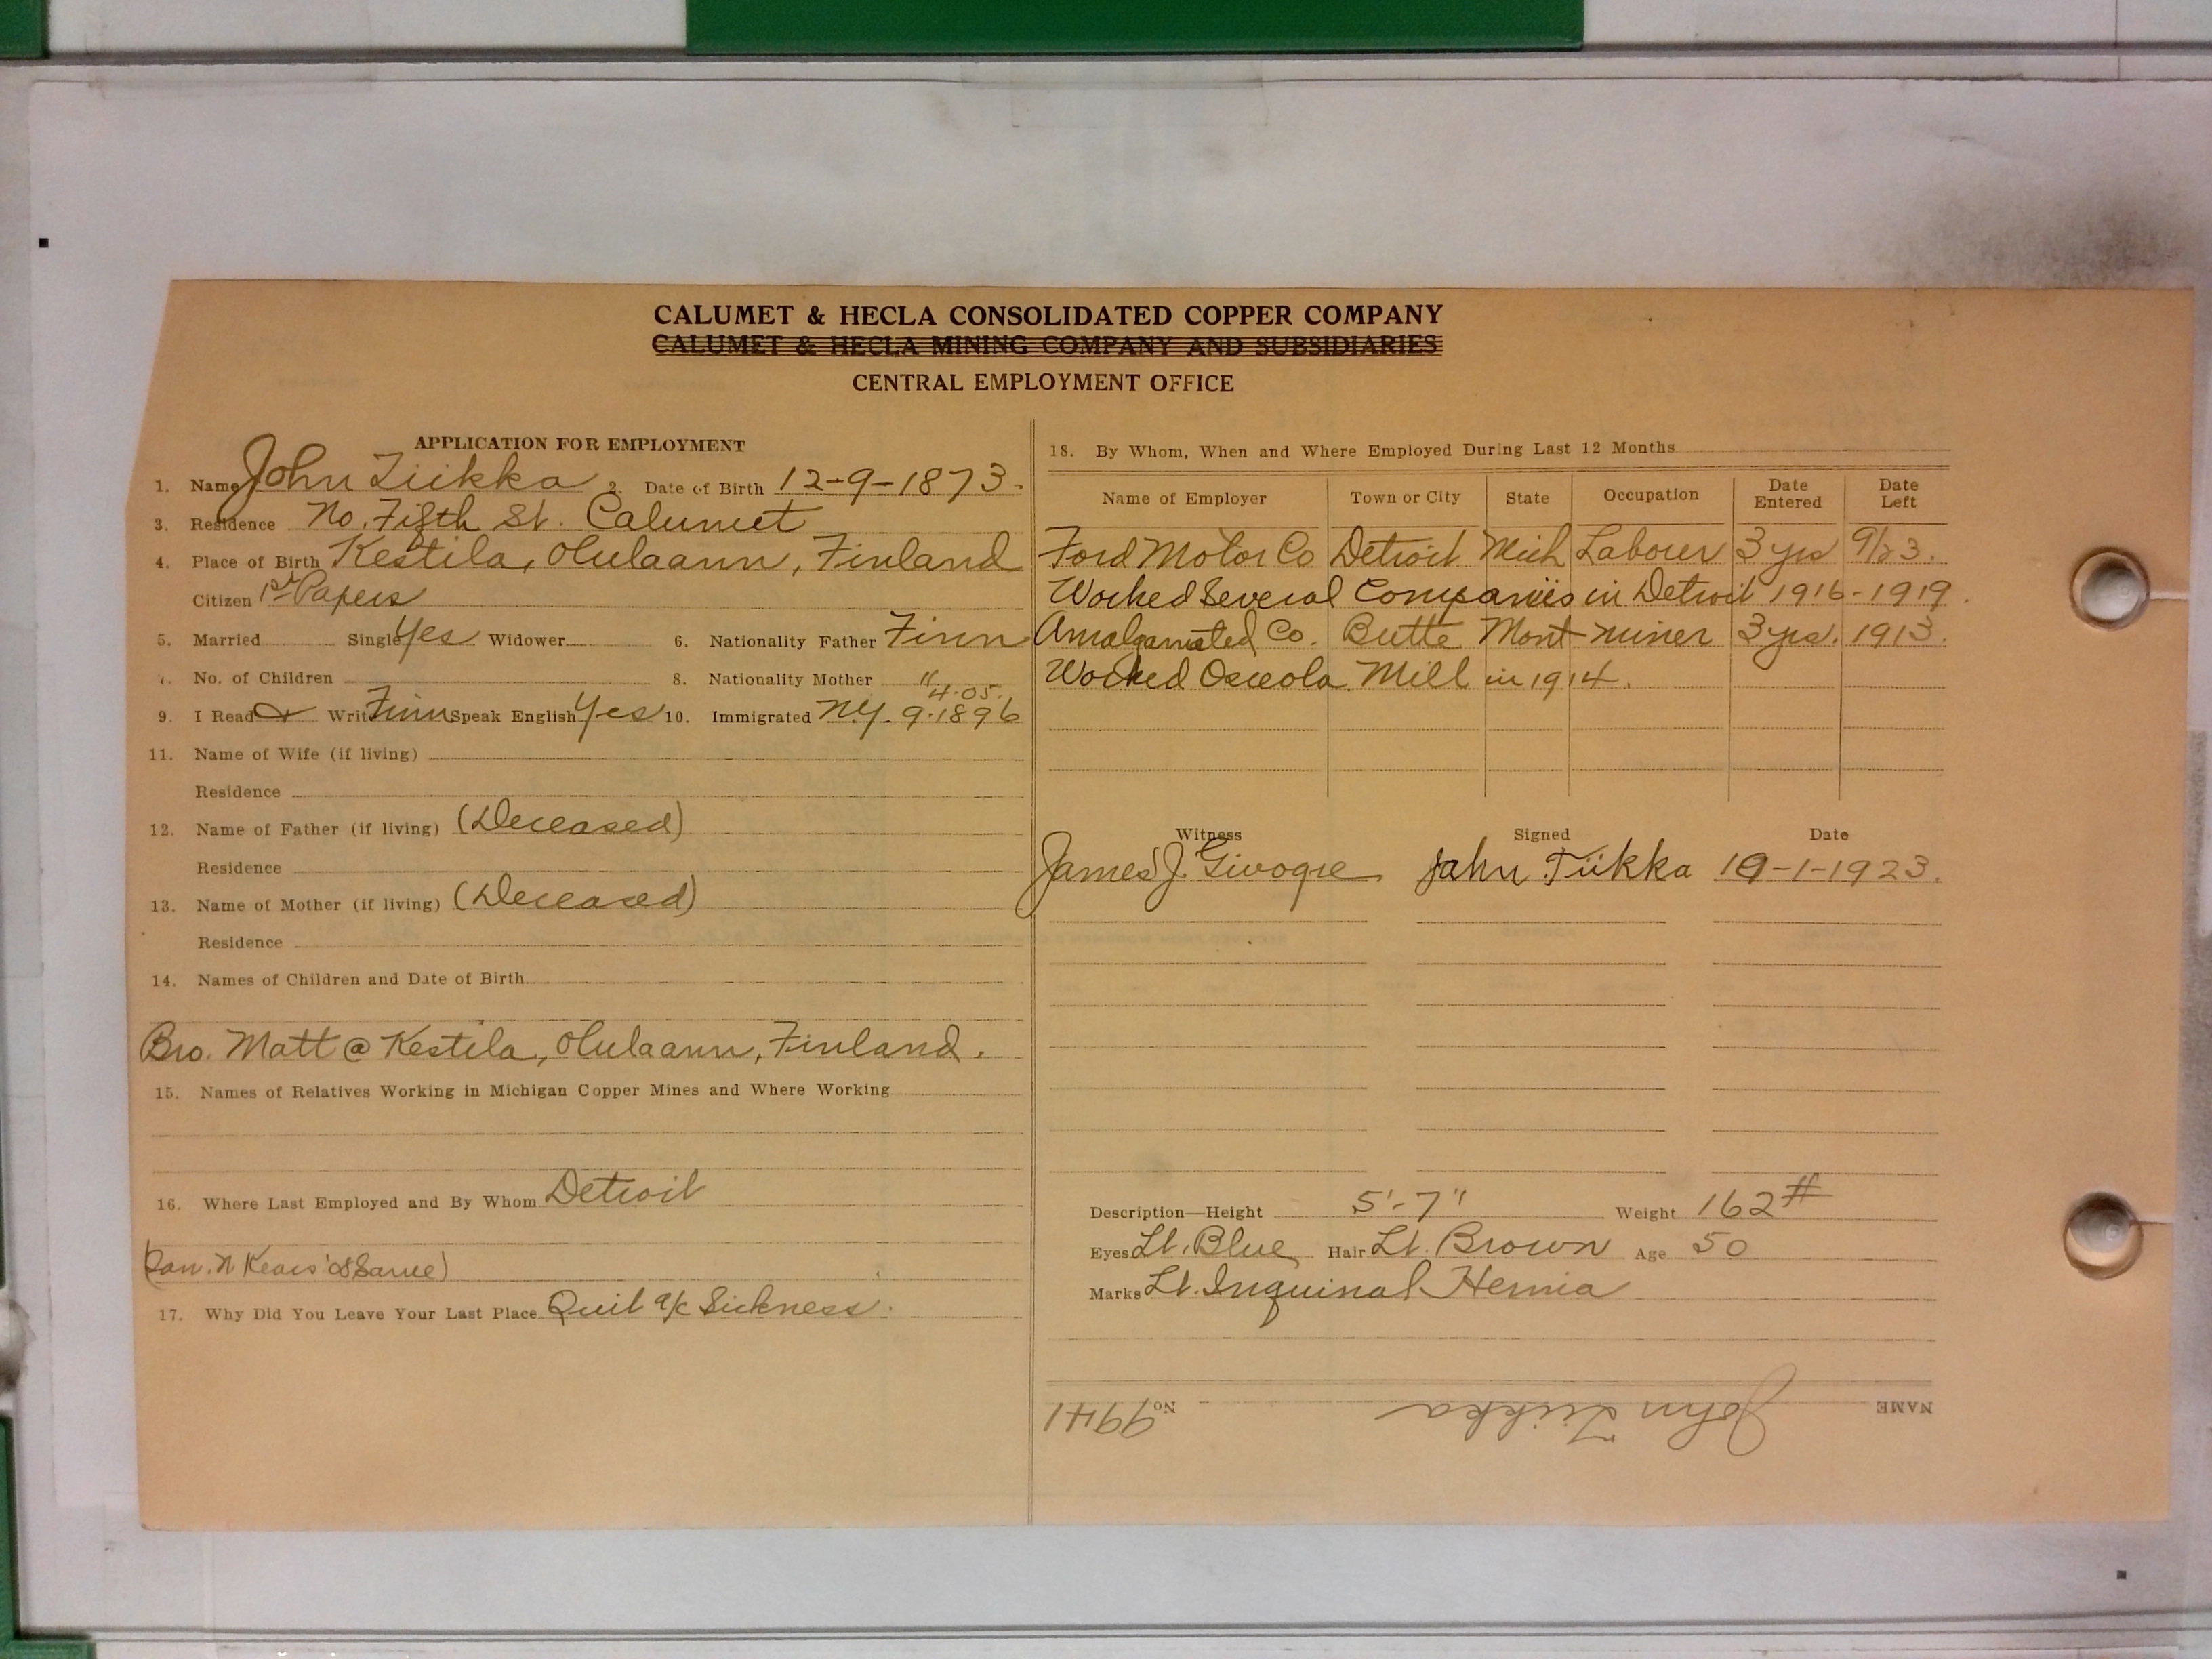 CALUMET & HECLA CONSOLIDATED COPPER COMPANY
CALUMET & HECLA MINING COMPANY AND SUBSIDIARIES
CENTRAL EMPLOYMENT OFFICE
APPLICATION FOR EMPLOYMENT
1. Name John Tiikka 2. Date of Birth 12-9-1873.
3. Residence No. Fifth St. Calumet
4. Place of Birth Kestila, Olulaann, Finland
Citizen 1st Papers
5. Married Single Yes Widower 6. Nationality Father Finn
7. No. of Children 8. Nationality Mother "
4.05.
9. I Read & Write Finn Speak English Yes 10. Immigrated N.Y. 9.1896
11. Name of Wife (if living)
Residence
12. Name of Father (if living) (Deceased)
Residence
13. Name of Mother (if living) (Deceased)
Residence
14. Names of Children and Date of Birth
Bro. Matt @ Kestila, Olulaann, Finland.
15. Names of Relatives Working in Michigan Copper Mines and Where Working
16. Where Last Employed and By Whom Detroit
17. Why Did You Leave Your Last Place Quit a/c Sickness.
18. By Whom, When and Where Employed During Last 12 Months
Name of Employer Town or City State Occupation Date Entered Date Left
Ford Motor Co Detroit Mich Laborer 3 yrs 9/23.
Worked Several Companies in Detroit 1916-1919.
Amalgamated Co. Butte Mont miner 3 yrs. 1913.
Worked Osceola Mill in 1914.
Witness Signed Date
James J. John Tiikka 10-1-1923.
Description—Height 5'-7" Weight 162#
Eyes Lt. Blue Hair Lt. Brown Age 50
Marks Lt. Inguinal Hernia
NAME John Tiikka No. 9941